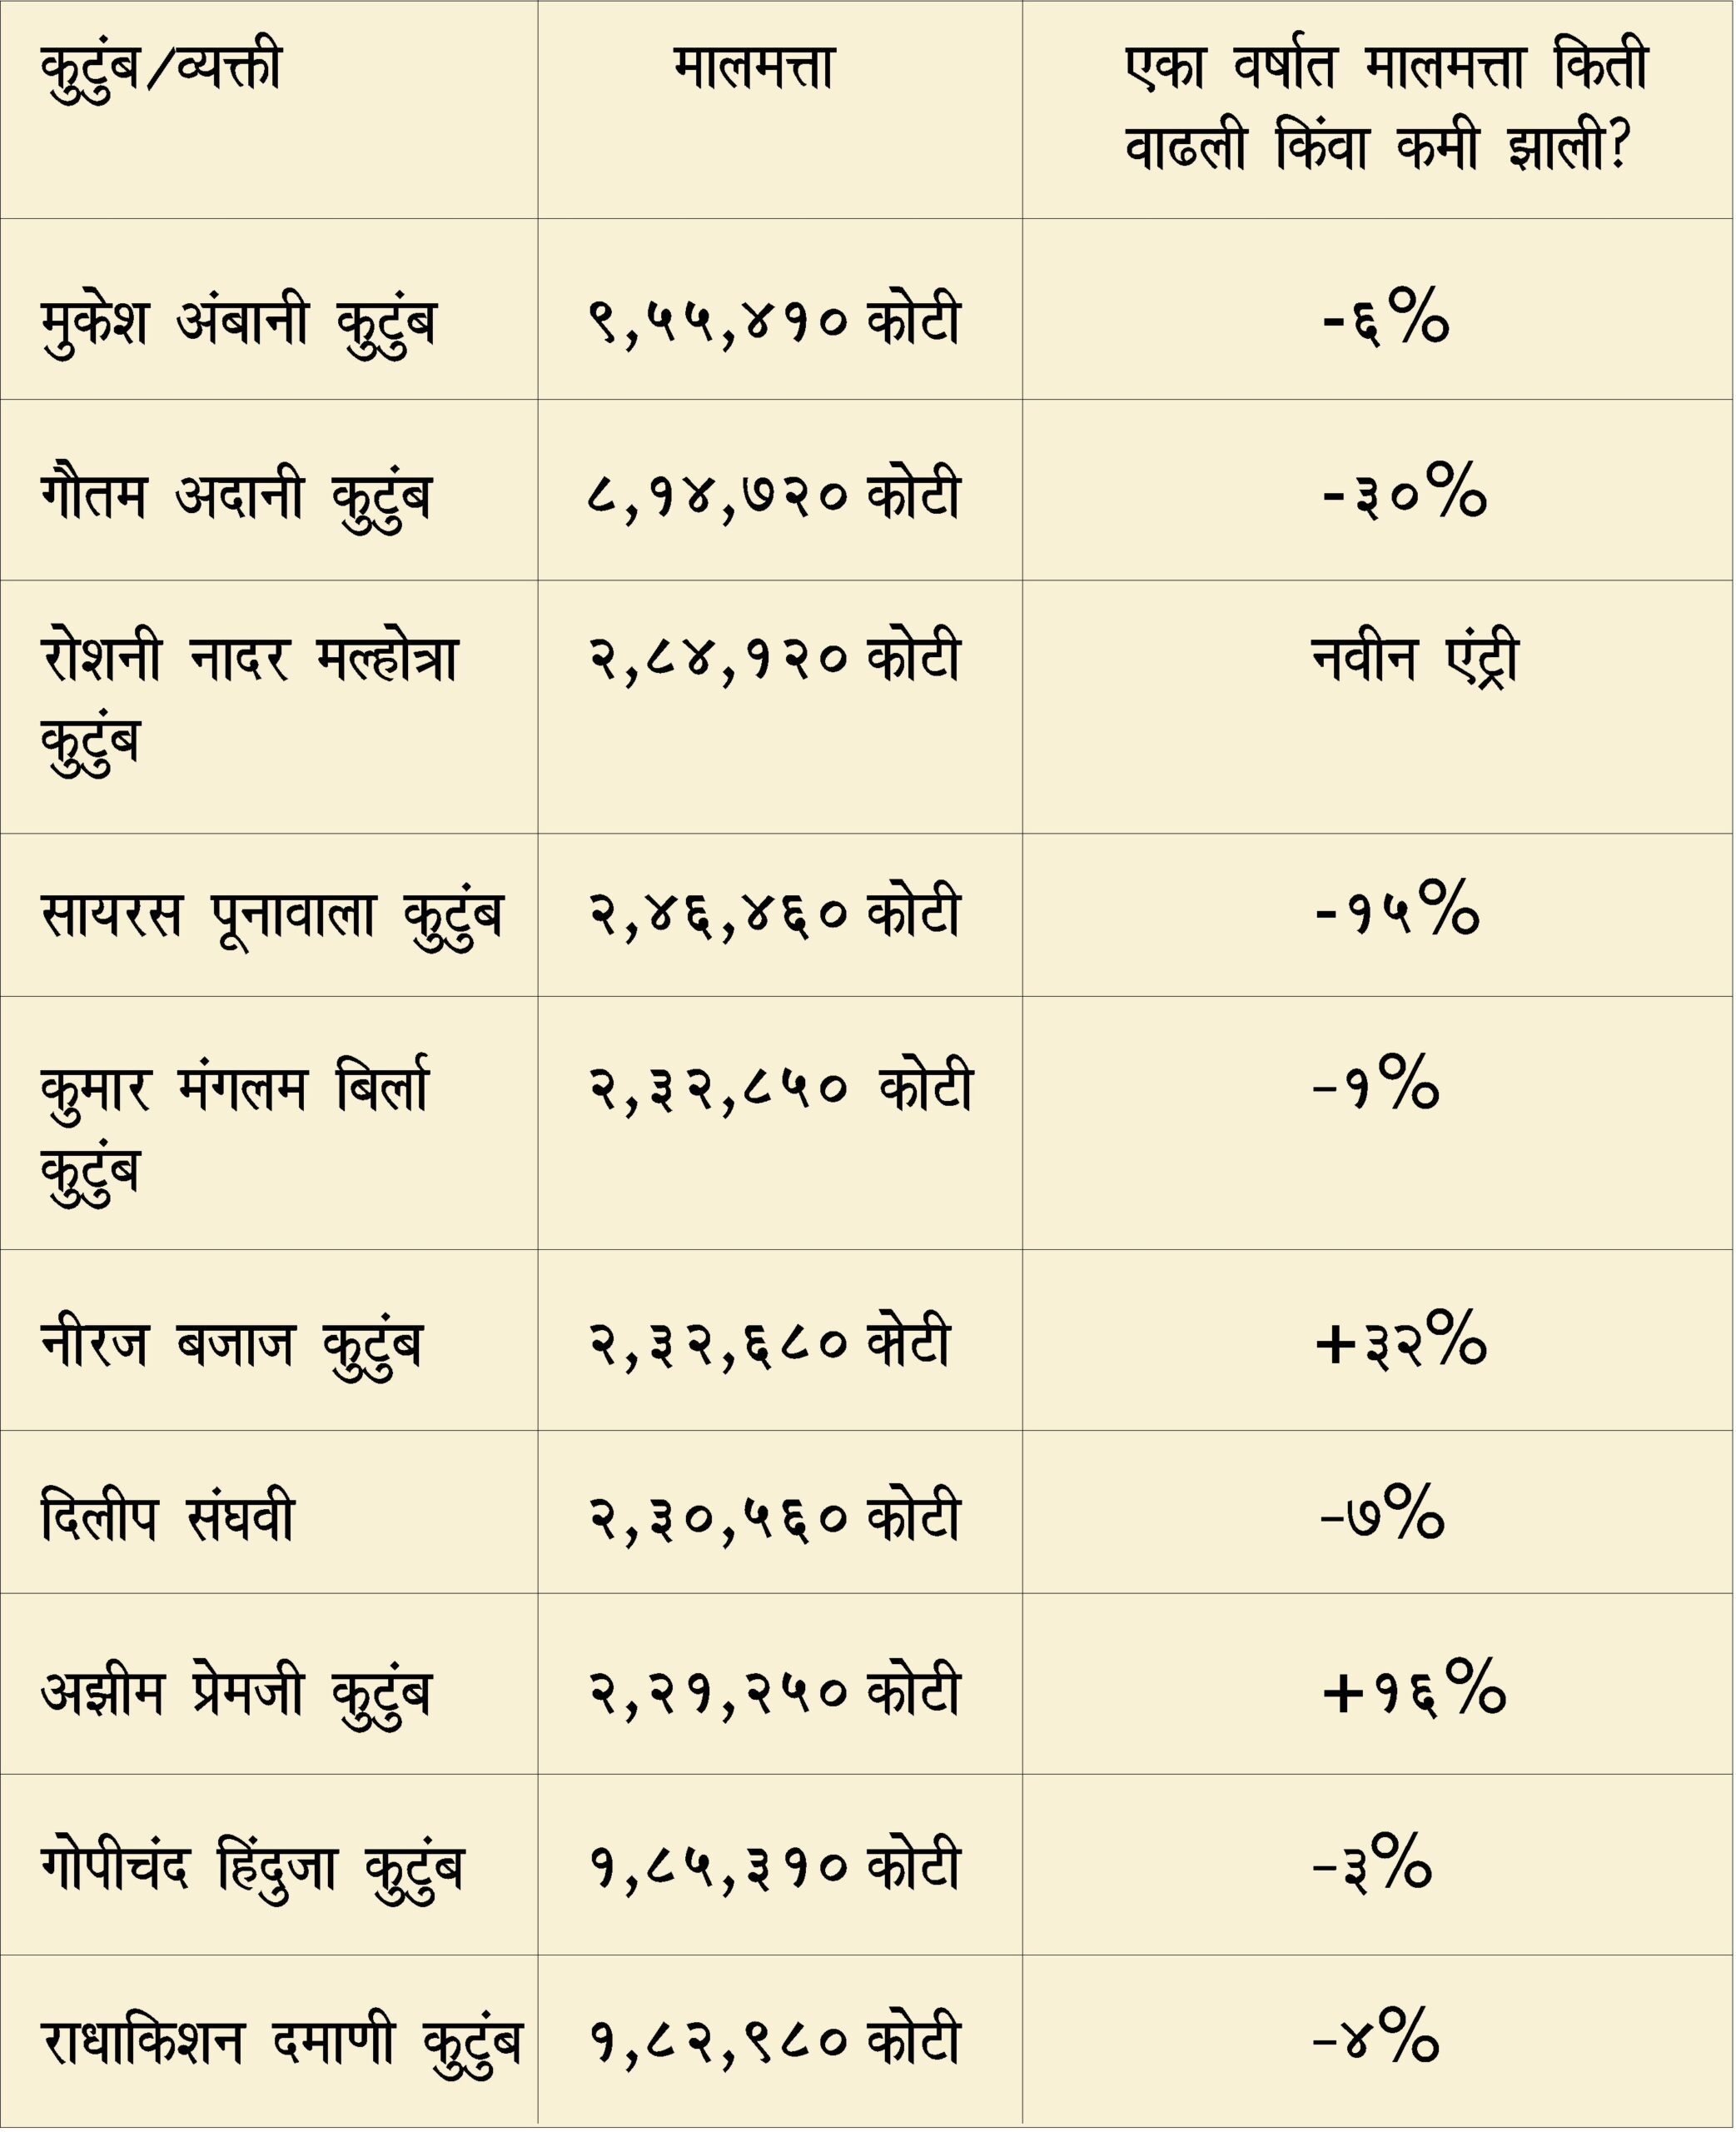 कुटुंब/व्यक्ती मालमत्ता एका वर्षात मालमत्ता किती
वाढली किंवा कमी झाली?
मुकेश अंबानी कुटुंब ९,५५,४१० कोटी -६%
गौतम अदानी कुटुंब ८,१४,७२० कोटी -३०%
रोशनी नादर मल्होत्रा २,८४,१२० कोटी नवीन एंट्री
कुटुंब
सायरस पूनावाला कुटुंब २,४६,४६० कोटी -१५%
कुमार मंगलम बिर्ला २,३२,८५० कोटी –१%
कुटुंब
नीरज बजाज कुटुंब २,३२,६८० केोटी +३२%
दिलीप संघवी २,३०,५६० कोटी –७%
अझीम प्रेमजी कुटुंब २,२१,२५० कोटी +१६%
गोपीचंद हिंदुजा कुटुंब १,८५,३१० कोटी –३%
राधाकिशन दमाणी कुटुंब १,८२,९८० कोटी –४%